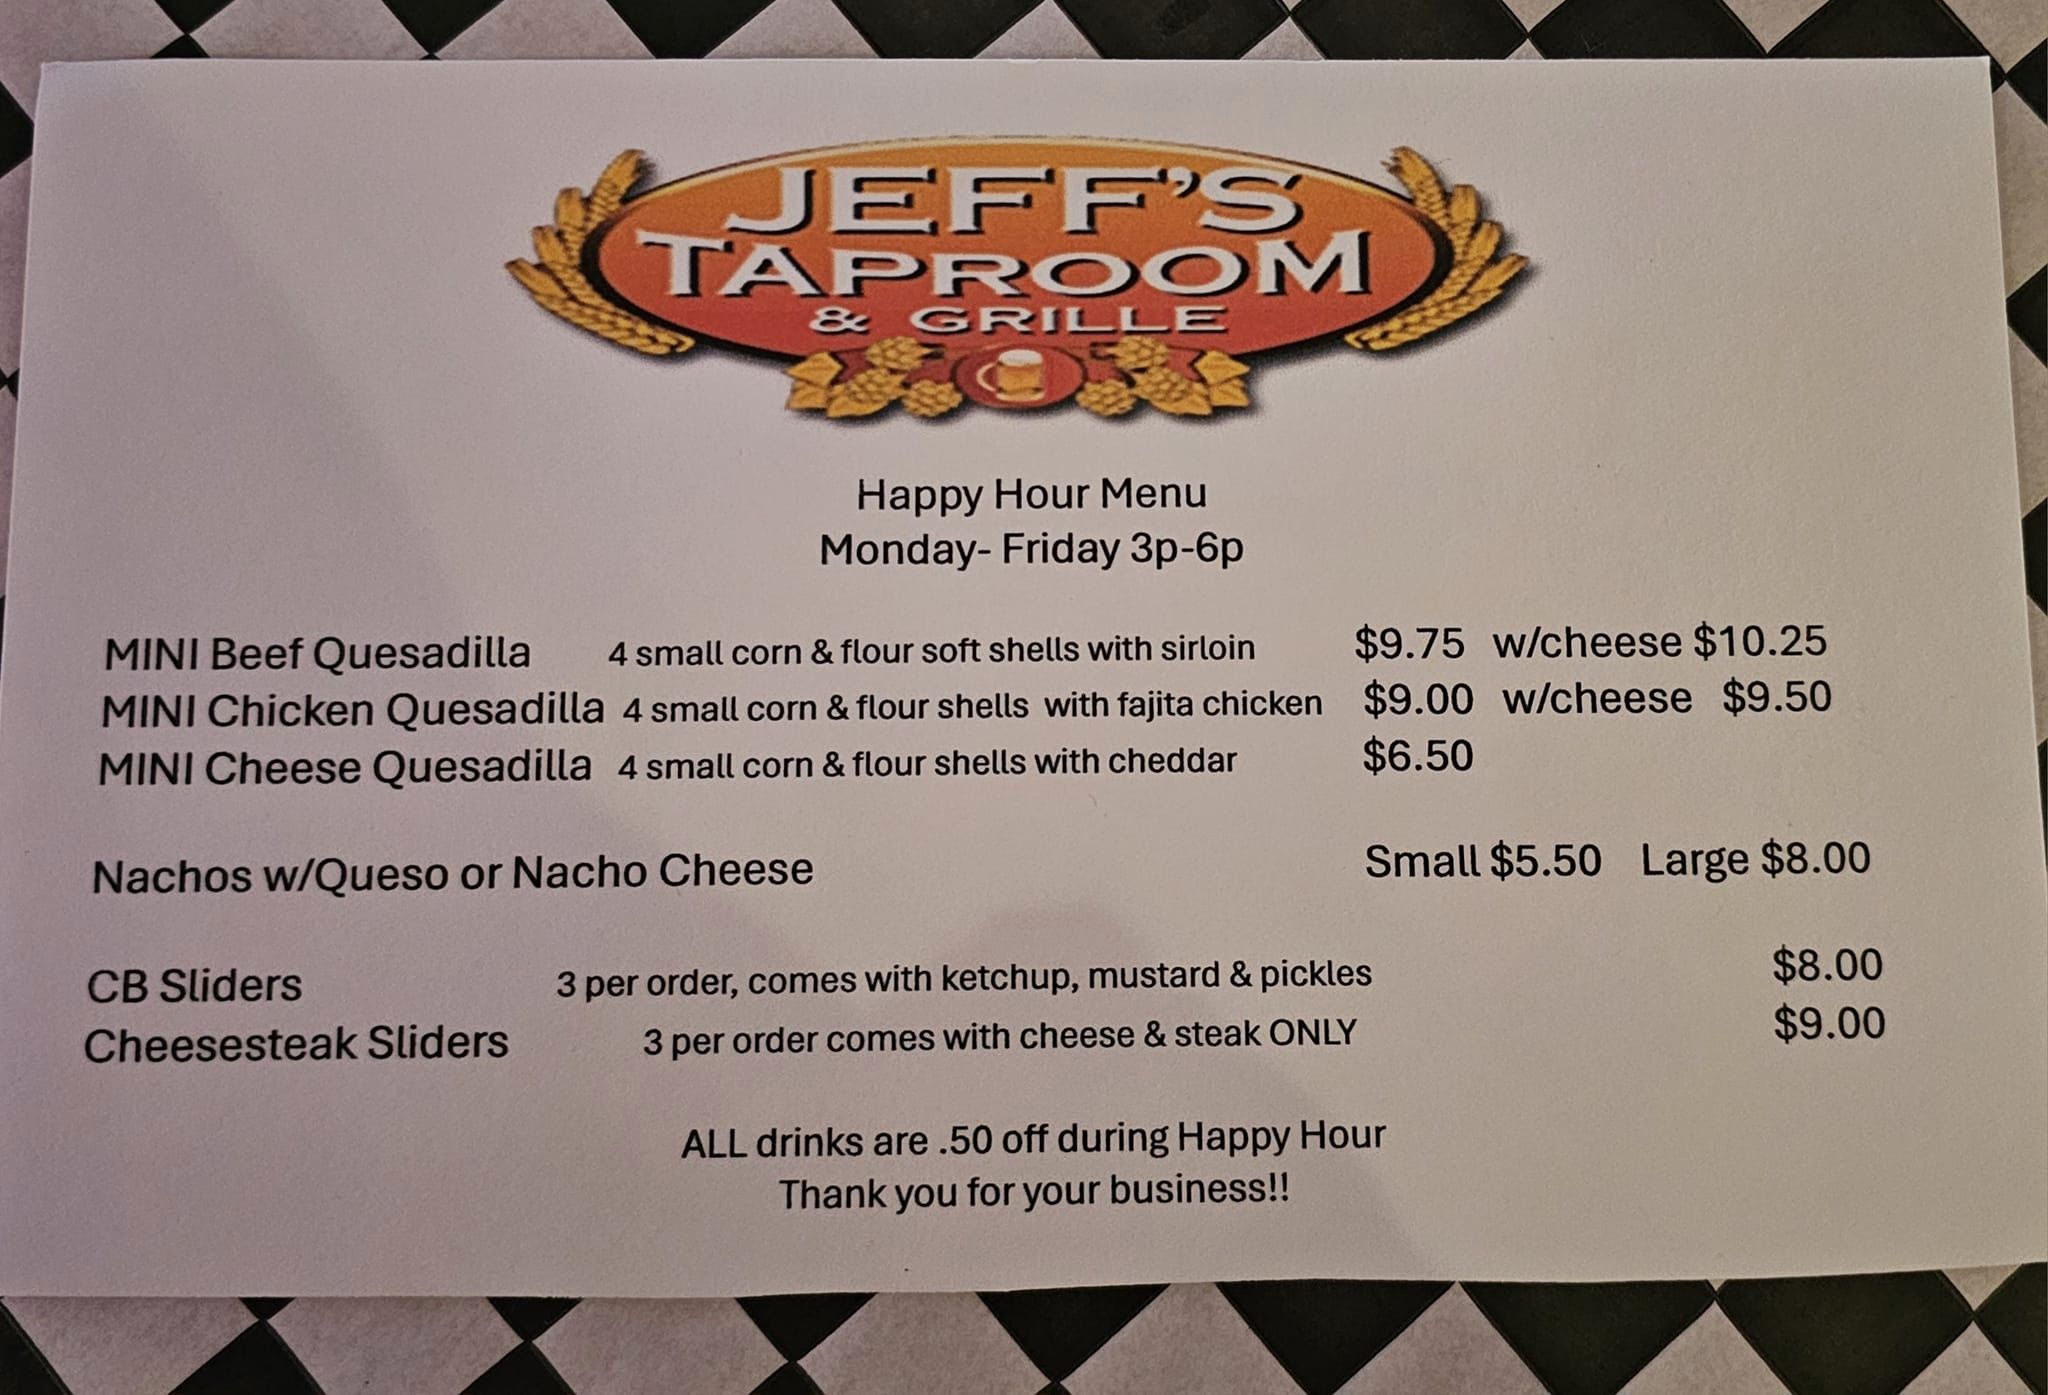 JEFF'S
TAPROOM
& GRILLE
Happy Hour Menu
Monday- Friday 3p-6p
MINI Beef Quesadilla 4 small corn & flour soft shells with sirloin $9.75 w/cheese $10.25
MINI Chicken Quesadilla 4 small corn & flour shells with fajita chicken $9.00 w/cheese $9.50
MINI Cheese Quesadilla 4 small corn & flour shells with cheddar $6.50
Nachos w/Queso or Nacho Cheese Small $5.50 Large $8.00
CB Sliders 3 per order, comes with ketchup, mustard & pickles $8.00
Cheesesteak Sliders 3 per order comes with cheese & steak ONLY $9.00
ALL drinks are .50 off during Happy Hour
Thank you for your business!!